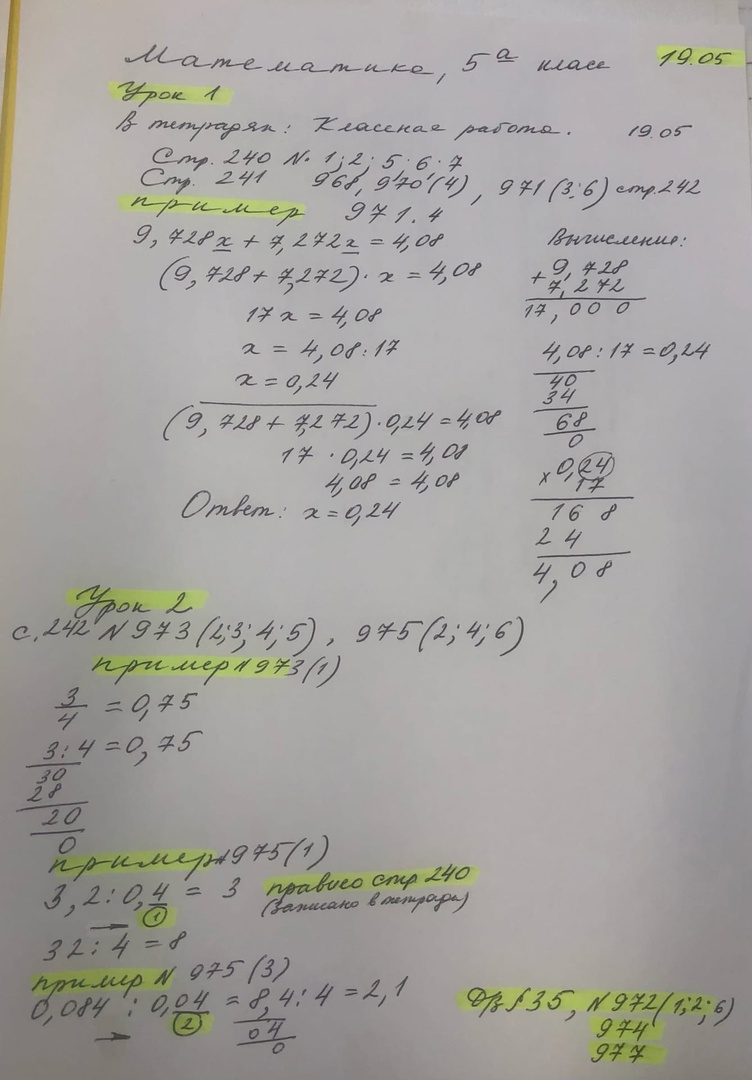 Математика, 5ᵃ класс 19.05
Урок 1
В тетрадях: Классная работа. 19.05
Стр. 240 № 1; 2; 5; 6; 7
Стр. 241 968, 970 (4), 971 (3; 6) стр. 242
пример 971.4
9,728x + 7,272x = 4,08
(9,728 + 7,272) · x = 4,08
17x = 4,08
x = 4,08 : 17
x = 0,24
(9,728 + 7,272) · 0,24 = 4,08
17 · 0,24 = 4,08
4,08 = 4,08
Ответ: x = 0,24
Вычисление:
+ 9,728
7,272
17,000
4,08 : 17 = 0,24
40
34
68
0
x 0,24
17
168
24
4,08
Урок 2
с. 242 № 973 (2; 3; 4; 5), 975 (2; 4; 6)
пример № 973 (1)
3/4 = 0,75
3 : 4 = 0,75
30
28
20
0
пример № 975 (1)
3,2 : 0,4 = 3 правило стр 240
(записано в тетради)
1
32 : 4 = 8
пример № 975 (3)
0,084 : 0,04 = 8,4 : 4 = 2,1
2
04
0
Д/з § 35, № 972 (1; 2; 6)
974
977